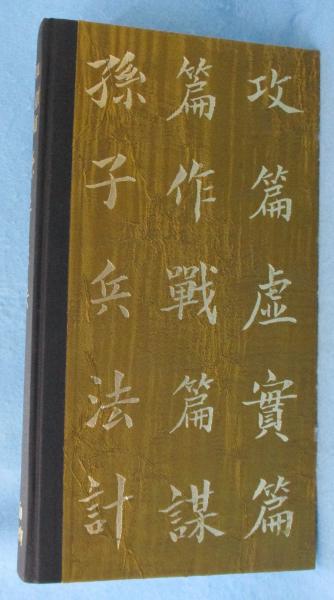 孫子兵法計
篇作戰篇謀
攻篇虚實篇